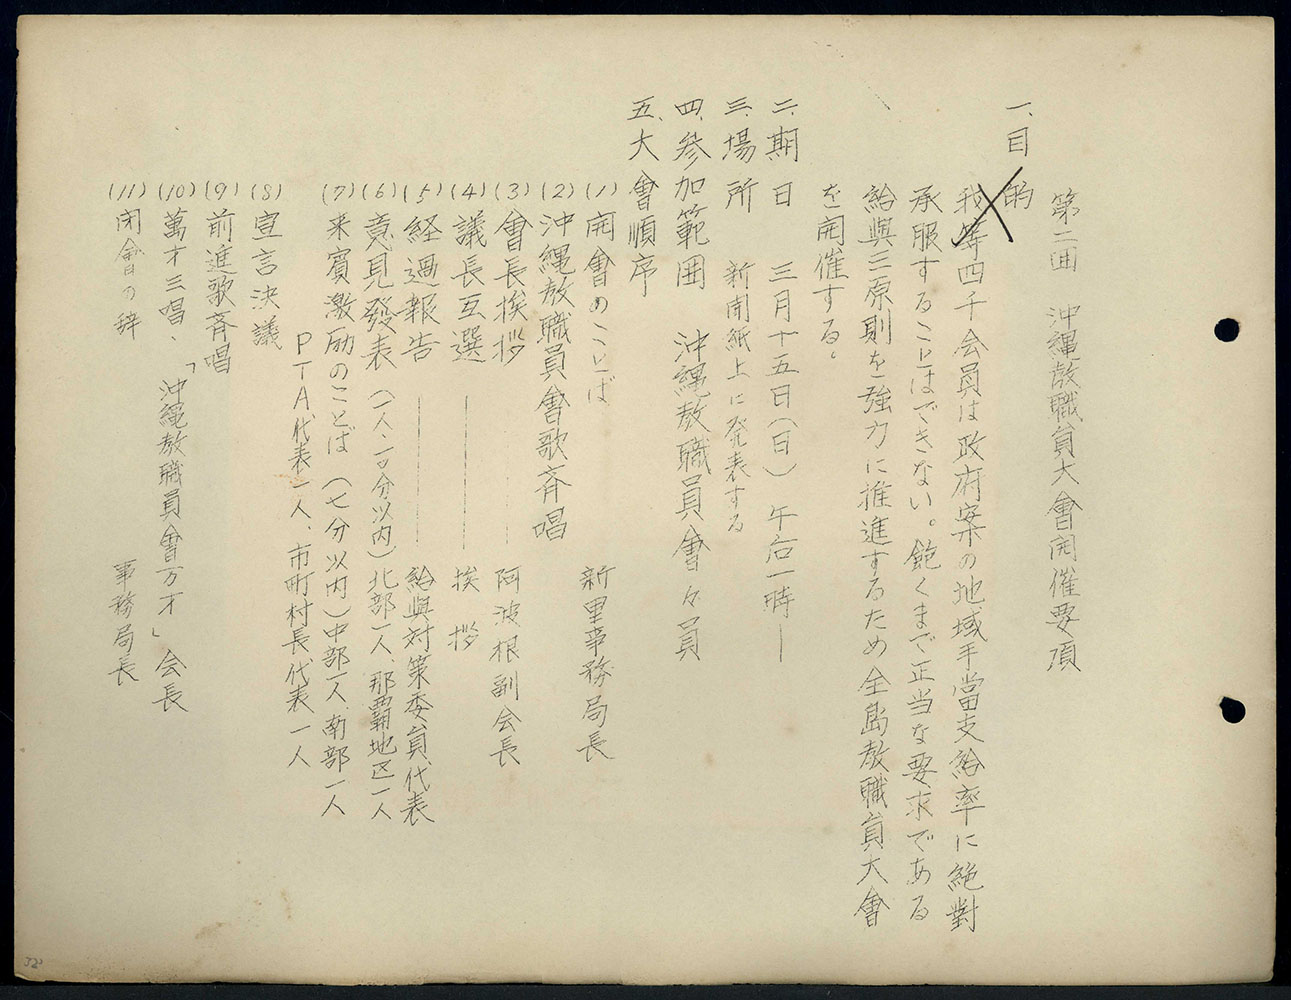 第二回 沖縄敎職員大會開催要項
一、目的
我等四千会員は政府案の地域手當支給率に絶對
承服することはできない。飽くまで正当な要求である
給與三原則を強力に推進するため全島敎職員大會
を開催する。
二、期日 三月十五日(日) 午后一時―
三、場所 新聞紙上に発表する
四、参加範囲 沖縄敎職員會々員
五、大會順序
(1) 開會のことば 新里事務局長
(2) 沖縄敎職員會歌斉唱
(3) 會長挨拶 阿波根副会長
(4) 議長互選 挨拶
(5) 経過報告 給與対策委員代表
(6) 意見發表 (一人一〇分以内) 北部一人、那覇地区一人
(7) 来賓激励のことば (七分以内) 中部一人、南部一人
PTA代表一人、市町村長代表一人
(8) 宣言決議
(9) 前進歌斉唱
(10) 萬才三唱、「沖縄敎職員會万才」 会長
(11) 閉會の辞 事務局長
32